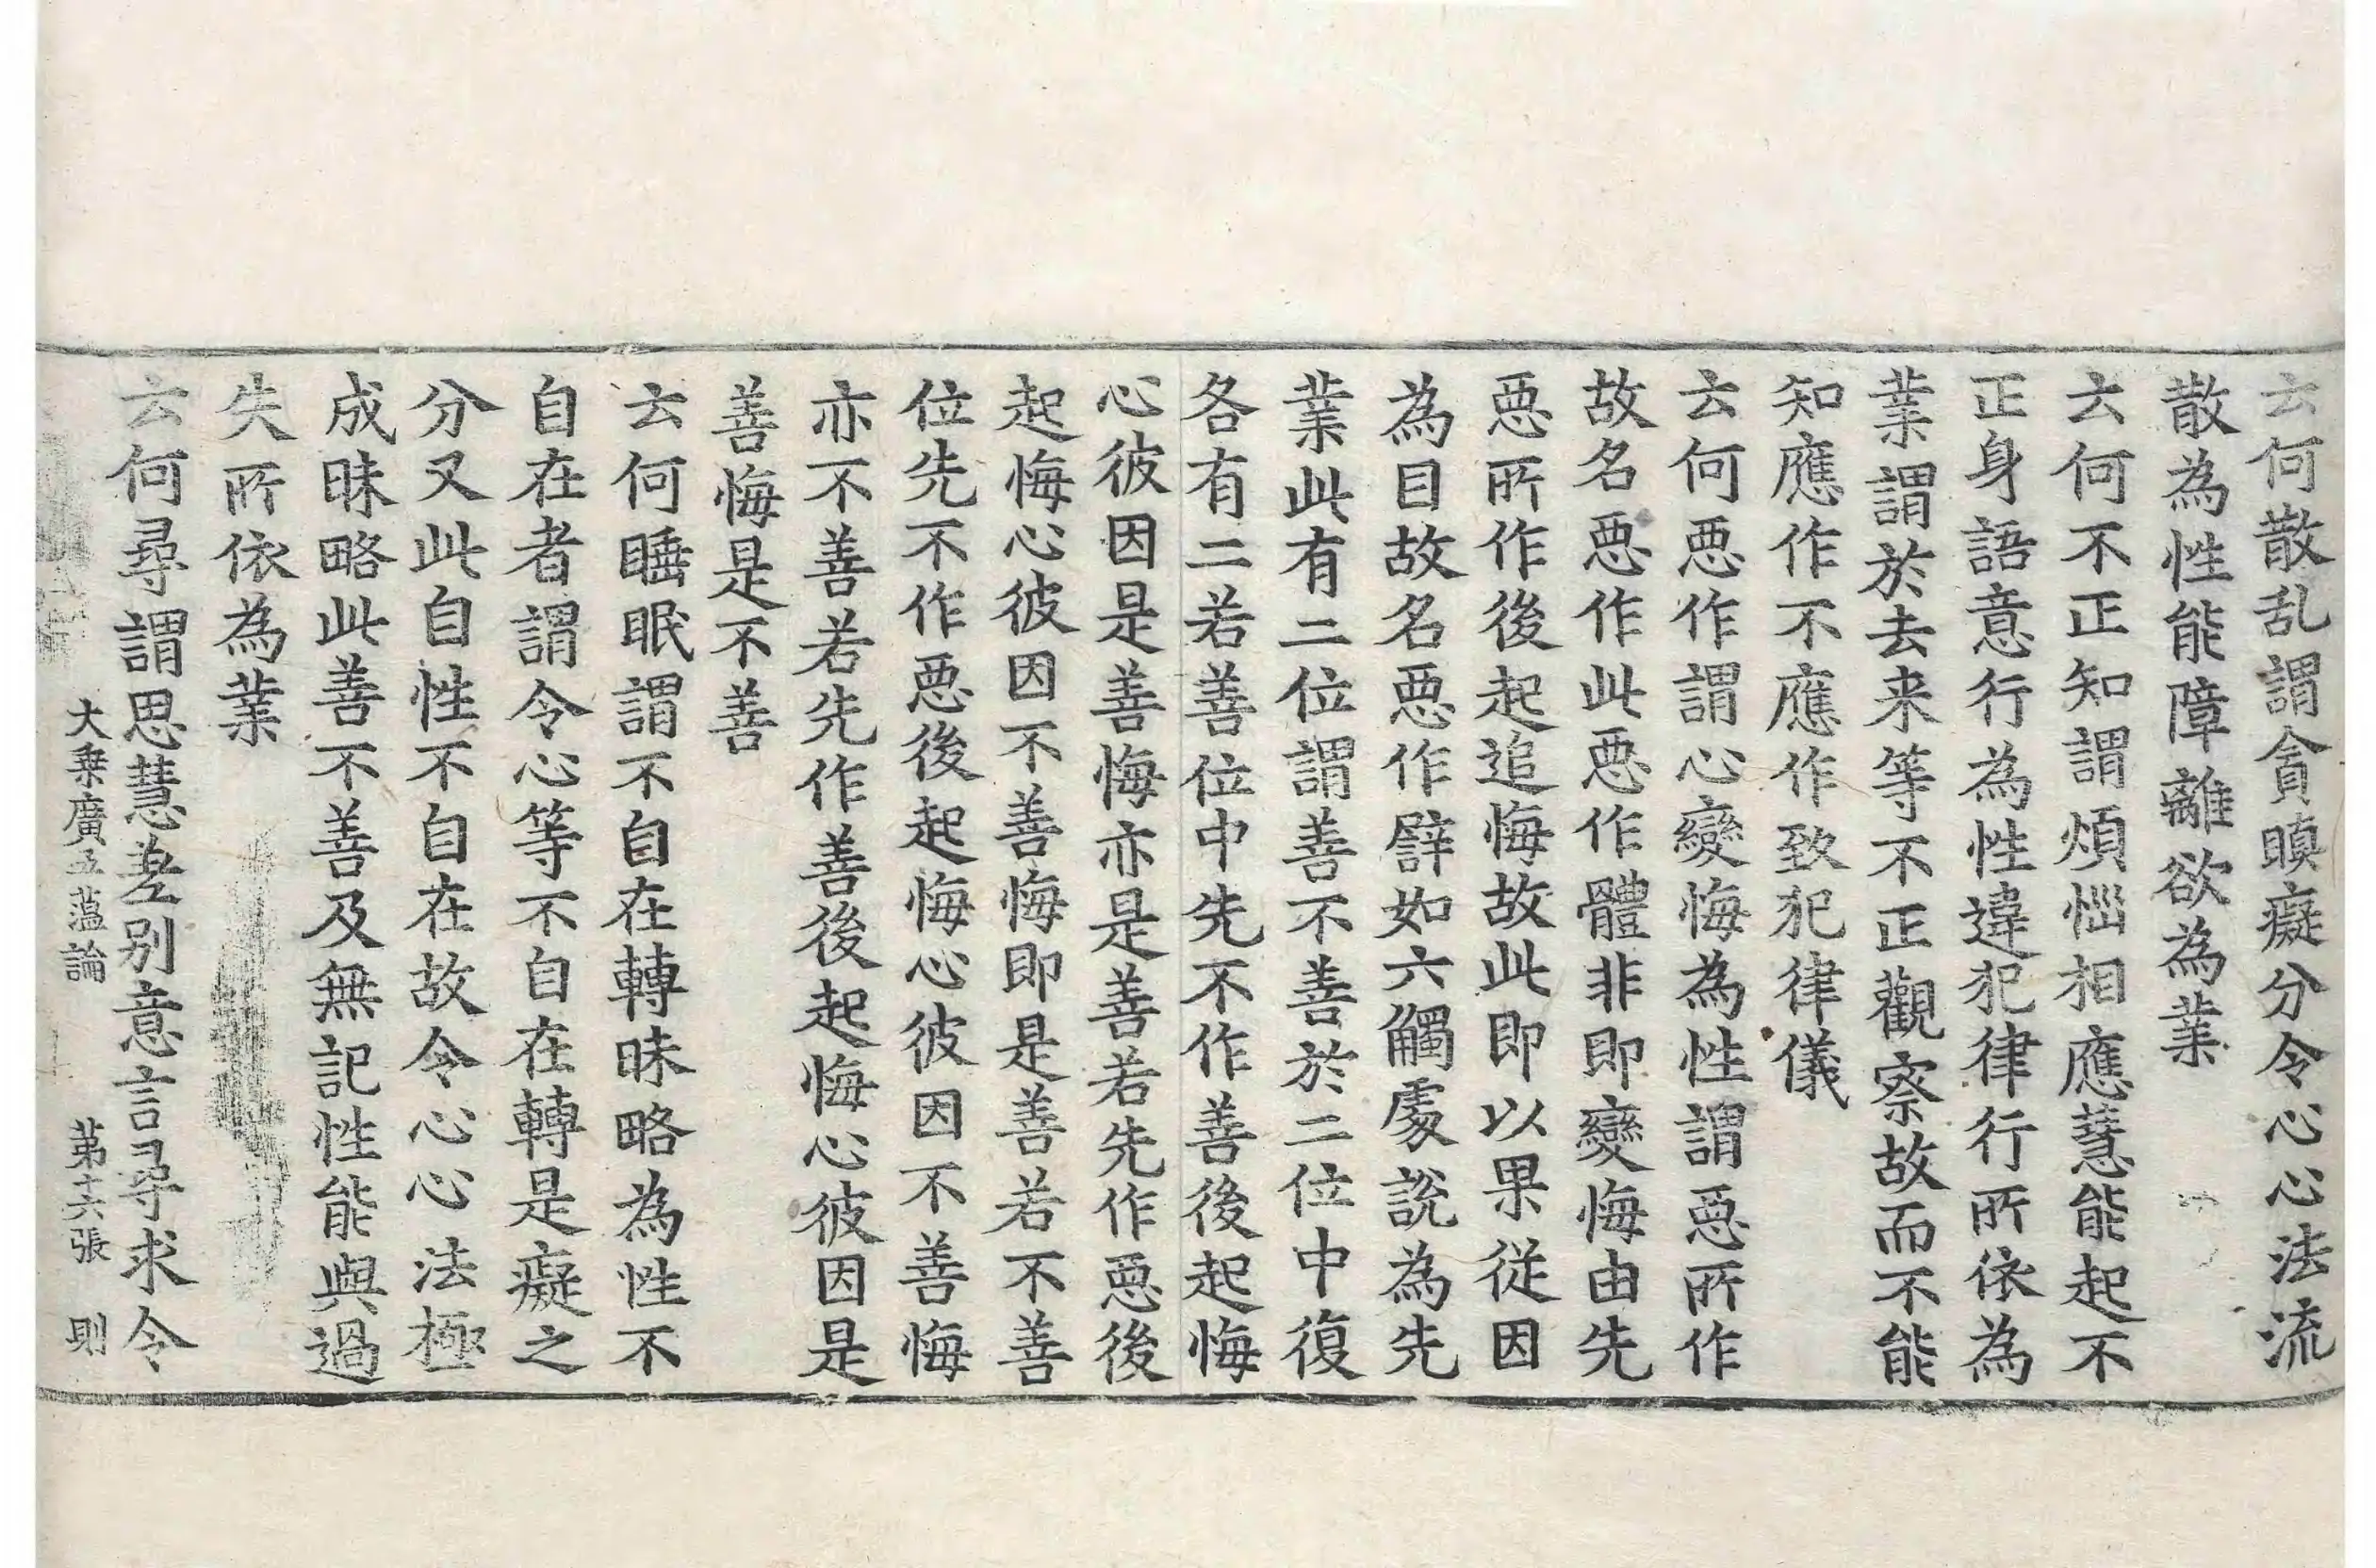 云何散乱謂貪瞋癡分令心心法流
散為性能障離欲為業
云何不正知謂煩惱相應慧能起不
正身語意行為性違犯律行所依為
業謂於去来等不正觀察故而不能
知應作不應作致犯律儀
云何惡作謂心變悔為性謂惡所作
故名惡作此惡作體非即變悔由先
惡所作後起追悔故此即以果從因
為目故名惡作譬如六觸處說為先
業此有二位謂善不善於二位中復
各有二若善位中先不作善後起悔
心彼因是善悔亦是善若先作惡後
起悔心彼因不善悔即是善若不善
位先不作惡後起悔心彼因不善悔
亦不善若先作善後起悔心彼因是
善悔是不善
云何睡眠謂不自在轉昧略為性不
自在者謂令心等不自在轉是癡之
分又此自性不自在故令心心法極
成昧略此善不善及無記性能與過
失所依為業
云何尋謂思慧差別意言尋求令
大乗廣五蕰論 第十六張 則